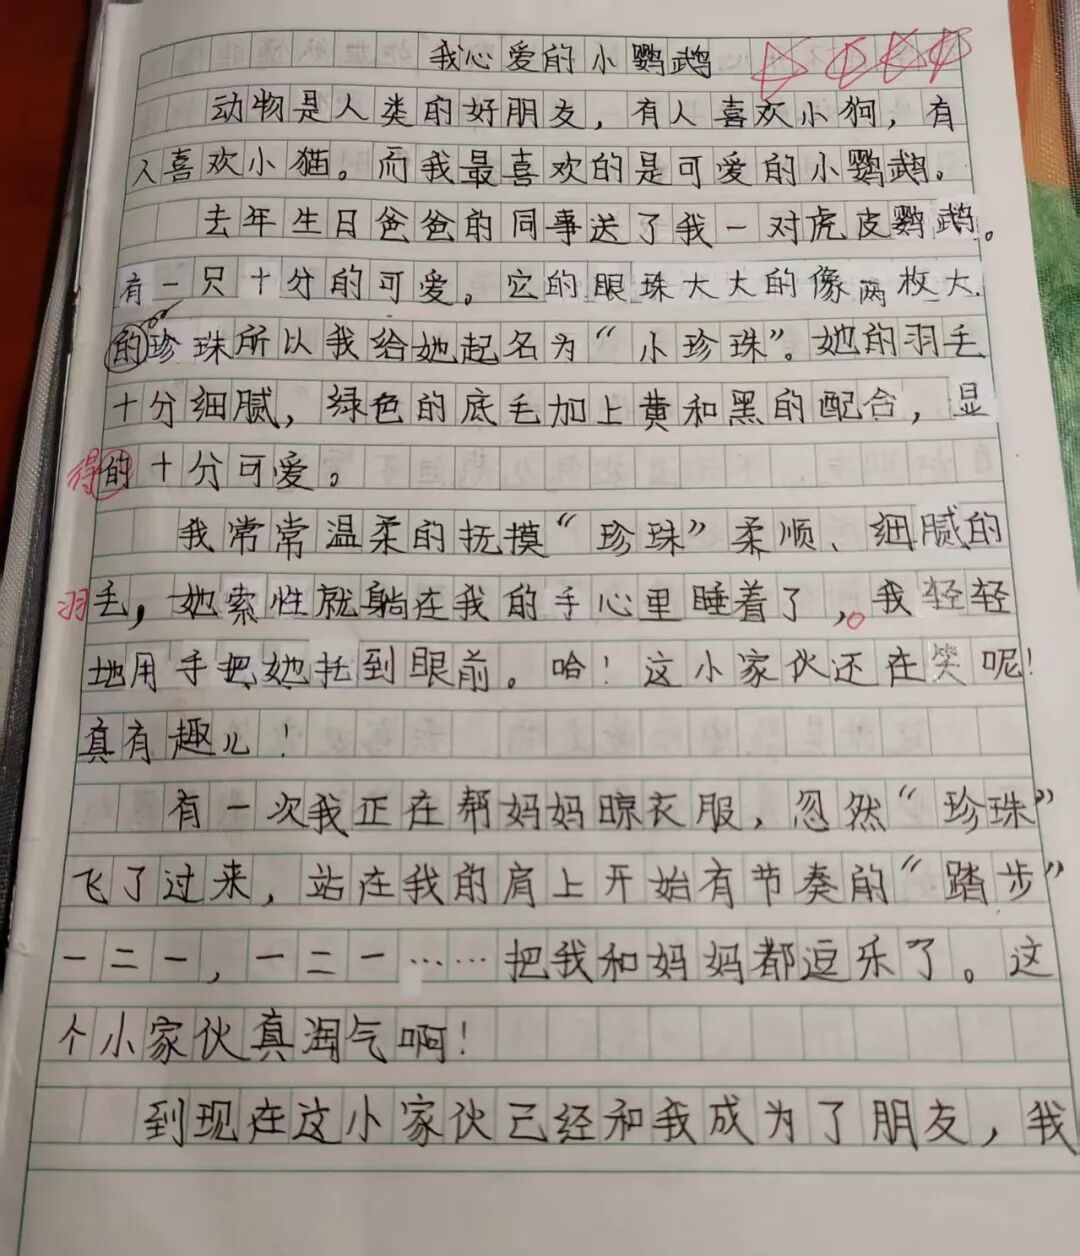 我心爱的小鹦鹉
动物是人类的好朋友，有人喜欢小狗，有
人喜欢小猫。而我最喜欢的是可爱的小鹦鹉。
去年生日爸爸的同事送了我一对虎皮鹦鹉。
有一只十分的可爱。它的眼珠大大的像两枚大
的珍珠所以我给她起名为“小珍珠”。她的羽毛
十分细腻，绿色的底毛加上黄和黑的配合，显
得的十分可爱。
我常常温柔的抚摸“珍珠”柔顺、细腻的
羽毛，她索性就躺在我的手心里睡着了，。我轻轻
地用手把她托到眼前。哈！这小家伙还在笑呢！
真有趣儿！
有一次我正在帮妈妈晾衣服，忽然“珍珠”
飞了过来，站在我的肩上开始有节奏的“踏步”
一二一，一二一……把我和妈妈都逗乐了。这
个小家伙真淘气啊！
到现在这小家伙已经和我成为了朋友，我